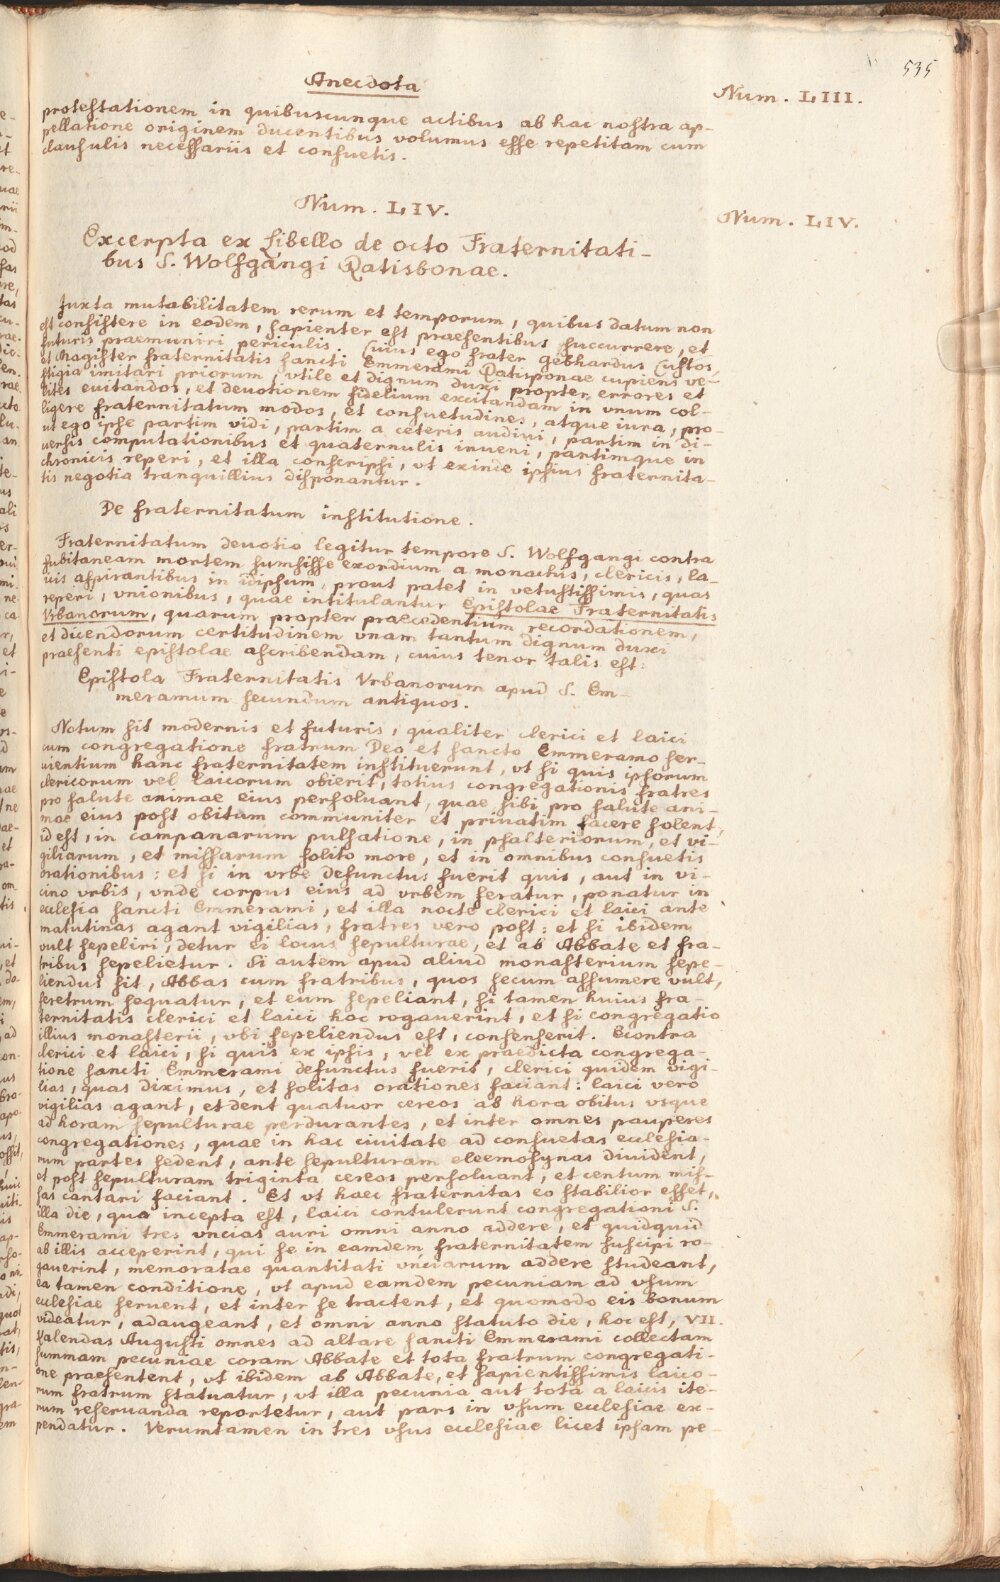 535
Anecdota
Num. LIII.
protestationem in quibuscunque actibus ab hac nostra ap-
pellatione originem ducentibus volumus esse repetitam cum
clausulis necessariis et consuetis.
Num. LIV.
Num. LIV.
Excerpta ex libello de octo Fraternitati-
bus S. Wolfgangi Ratisbonae.
Juxta mutabilitatem rerum et temporum, quibus datum non
est consistere in eodem, sapienter est praesentibus succurrere, et
futuris praemuniri periculis. Cuius ego frater Gebhardus Custos,
et Magister fraternitatis sancti Emmerami Ratisponae cupiens ve-
stigia imitari priorum, vtile et dignum duxi propter errores et
lites euitandos, et deuotionem fidelium excitandam in vnum col-
ligere fraternitatum modos, et consuetudines, atque iura, pro-
ut ego ipse partim vidi, partim a ceteris audiui, partim in di-
uersis computationibus et quaternulis inueni, partimque in
chronicis reperi, et illa conscripsi, vt exinde ipsius fraternita-
tis negotia tranquillius disponantur.
De fraternitatum institutione.
Fraternitatum deuotio legitur tempore S. Wolfgangi contra
subitaneam mortem sumsisse exordium a monachis, clericis, la-
icis aspirantibus in idipsum, prout patet in vetustissimis, quas
reperi, vnionibus, quae intitulantur Epistolae Fraternitatis
Vrbanorum, quarum propter praecedentium recordationem,
et dicendorum certitudinem vnam tantum dignum duxi
praesenti epistolae ascribendam, cuius tenor talis est:
Epistola Fraternitatis Vrbanorum apud S. Em-
meramum secundum antiquos.
Notum sit modernis et futuris, qualiter clerici et laici
cum congregatione fratrum Deo et sancto Emmeramo ser-
uientium hanc fraternitatem instituerunt, vt si quis ipsorum
clericorum vel laicorum obierit, totius congregationis fratres
pro salute animae eius persoluant, quae sibi pro salute ani-
mae eius post obitum communiter et priuatim facere solent,
id est, in campanarum pulsatione, in psalteriorum, et vi-
giliarum, et missarum solito more, et in omnibus consuetis
orationibus: et si in vrbe defunctus fuerit quis, aut in vi-
cino vrbis, vnde corpus eius ad vrbem feratur, ponatur in
ecclesia sancti Emmerami, et illa nocte clerici et laici ante
matutinas agant vigilias, fratres vero post: et si ibidem
vult sepeliri, detur ei locus sepulturae, et ab Abbate et fra-
tribus sepelietur. Si autem apud aliud monasterium sepe-
liendus sit, Abbas cum fratribus, quos secum assumere vult,
feretrum sequatur, et eum sepeliant, si tamen huius fra-
ternitatis clerici et laici hoc rogauerint, et si congregatio
illius monasterii, vbi sepeliendus est, consenserit. Econtra
clerici et laici, si quis ex ipsis, vel ex praedicta congrega-
tione sancti Emmerami defunctus fuerit, clerici quidem vigi-
lias, quas diximus, et solitas orationes faciant: laici vero
vigilias agant, et dent quatuor cereos ab hora obitus vsque
ad horam sepulturae perdurantes, et inter omnes pauperes
congregationes, quae in hac ciuitate ad consuetas ecclesia-
rum partes sedent, ante sepulturam eleemosynas diuident,
et post sepulturam triginta cereos persoluant, et centum mis-
sas cantari faciant. Et vt haec fraternitas eo stabilior esset,
illa die, qua incepta est, laici contulerunt congregationi S.
Emmerami tres vncias auri omni anno addere, et quidquid
ab illis acceperint, qui se in eamdem fraternitatem suscipi ro-
gauerint, memoratae quantitati vnciarum addere studeant,
ea tamen conditione, vt apud eamdem pecuniam ad vsum
ecclesiae seruent, et inter se tractent, et quomodo eis bonum
videatur, adaugeant, et omni anno statuto die, hoc est, VII.
Kalendas Augusti omnes ad altare sancti Emmerami collectam
summam pecuniae coram Abbate et tota fratrum congregati-
one praesentent, vt ibidem ab Abbate, et sapientissimis laico-
rum fratrum statuatur, vt illa pecunia aut tota a laicis ite-
rum reseruanda reportetur, aut pars in vsum ecclesiae ex-
pendatur. Verumtamen in tres vsus ecclesiae licet ipsam pe-